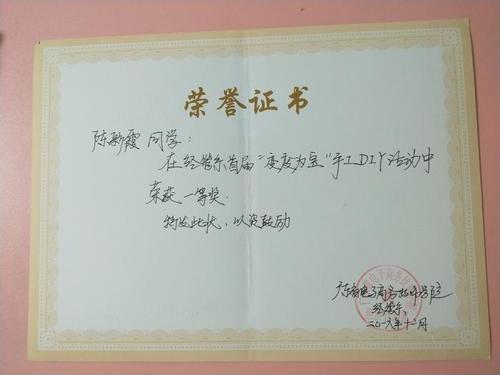 荣誉证书
陈新霞 同学：
在经管系首届“变废为宝”手工DIY活动中
荣获 一等奖.
特发此状，以资鼓励
广东省电子商务技师学院
经管系
二〇一六年十二月